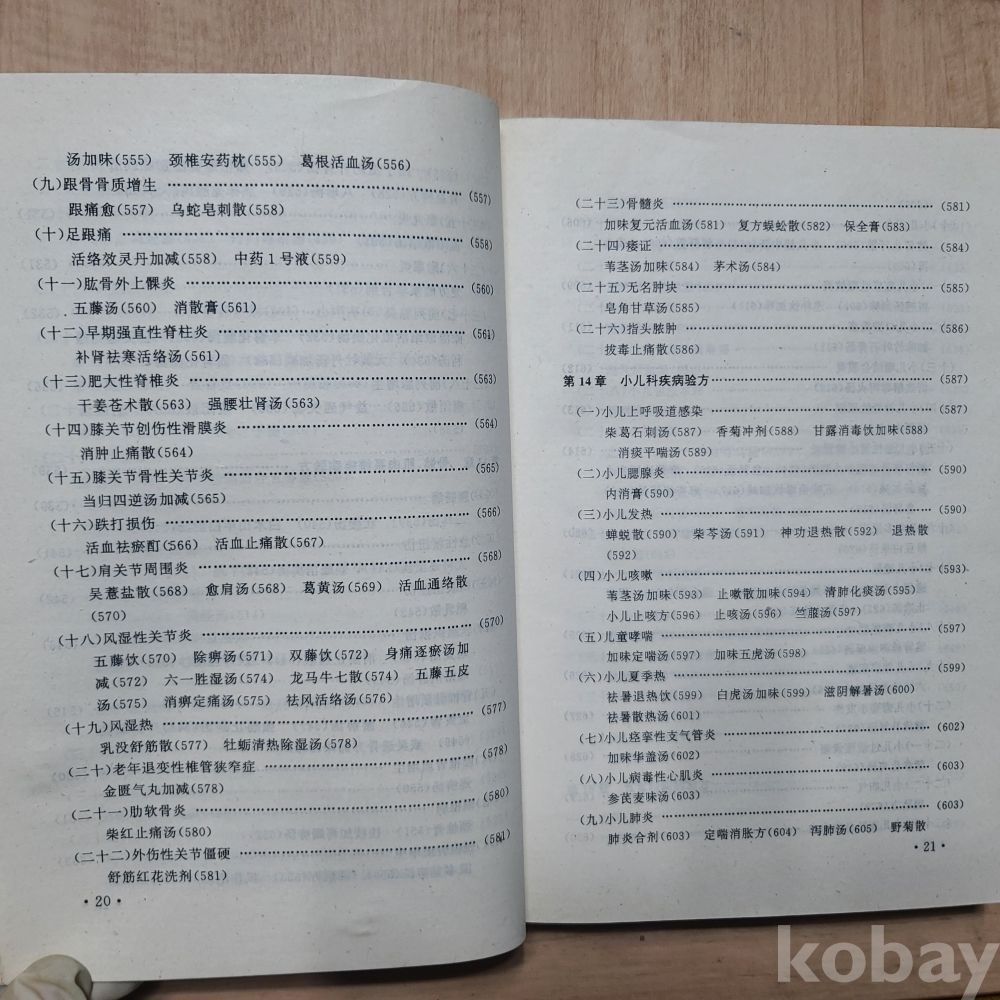 汤加味(555) 颈椎安药枕(555) 葛根活血汤(556)
(九)跟骨骨质增生 ……………………………………………… (557)
跟痛愈(557) 乌蛇皂刺散(558)
(十)足跟痛 ……………………………………………… (558)
活络效灵丹加减(558) 中药1号液(559)
(十一)肱骨外上髁炎 ……………………………………………… (560)
五藤汤(560) 消散膏(561)
(十二)早期强直性脊柱炎 ……………………………………………… (561)
补肾祛寒活络汤(561)
(十三)肥大性脊椎炎 ……………………………………………… (563)
干姜苍术散(563) 强腰壮肾汤(563)
(十四)膝关节创伤性滑膜炎 ……………………………………………… (564)
消肿止痛散(564)
(十五)膝关节骨性关节炎 ……………………………………………… (565)
当归四逆汤加减(565)
(十六)跌打损伤 ……………………………………………… (566)
活血祛瘀酊(566) 活血止痛散(567)
(十七)肩关节周围炎 ……………………………………………… (568)
吴薏盐散(568) 愈肩汤(568) 葛黄汤(569) 活血通络散
(570)
(十八)风湿性关节炎 ……………………………………………… (570)
五藤饮(570) 除痹汤(571) 双藤饮(572) 身痛逐瘀汤加
减(572) 六一胜湿汤(574) 龙马牛七散(574) 五藤五皮
汤(575) 消痹定痛汤(575) 祛风活络汤(576)
(十九)风湿热 ……………………………………………… (577)
乳没舒筋散(577) 牡蛎清热除湿汤(578)
(二十)老年退变性椎管狭窄症 ……………………………………………… (578)
金匮气丸加减(578)
(二十一)肋软骨炎 ……………………………………………… (580)
柴红止痛汤(580)
(二十二)外伤性关节僵硬 ……………………………………………… (581)
舒筋红花洗剂(581)
·20·
(二十三)骨髓炎 ……………………………………………… (581)
加味复元活血汤(581) 复方蜈蚣散(582) 保全膏(583)
(二十四)痿证 ……………………………………………… (584)
苇茎汤加味(584) 茅术汤(584)
(二十五)无名肿块 ……………………………………………… (585)
皂角甘草汤(585)
(二十六)指头脓肿 ……………………………………………… (586)
拔毒止痛散(586)
第14章 小儿科疾病验方 ……………………………………………… (587)
(一)小儿上呼吸道感染 ……………………………………………… (587)
柴葛石刺汤(587) 香菊冲剂(588) 甘露消毒饮加味(588)
消痰平喘汤(589)
(二)小儿腮腺炎 ……………………………………………… (590)
内消膏(590)
(三)小儿发热 ……………………………………………… (590)
蝉蜕散(590) 柴芩汤(591) 神功退热散(592) 退热散
(592)
(四)小儿咳嗽 ……………………………………………… (593)
苇茎汤加味(593) 止嗽散加味(594) 清肺化痰汤(595)
小儿止咳方(596) 止咳汤(596) 竺蔻汤(597)
(五)儿童哮喘 ……………………………………………… (597)
加味定喘汤(597) 加味五虎汤(598)
(六)小儿夏季热 ……………………………………………… (599)
祛暑退热饮(599) 白虎汤加味(599) 滋阴解暑汤(600)
祛暑散热汤(601)
(七)小儿痉挛性支气管炎 ……………………………………………… (602)
加味华盖汤(602)
(八)小儿病毒性心肌炎 ……………………………………………… (603)
参芪麦味汤(603)
(九)小儿肺炎 ……………………………………………… (603)
肺炎合剂(603) 定喘消胀方(604) 泻肺汤(605) 野菊散
·21·
kobay